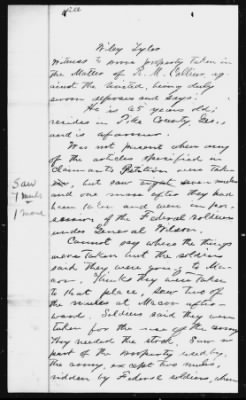 Will
Wiley Tyler
Witness to prove property taken in
the Matter of R. M. Collier, ag
ainst the United, being duly
sworn deposes and says:
He is 65 years old;
resides in Pike County, Geo.,
and is a farmer.
Was not present when any
of the articles specified in
Claimants Petition were taken
but saw mules
and one mare after they had
been taken and were in pos-
session of the Federal soldiers
under General Wilson.
Cannot say where the things
were taken but the soldiers
said they were going to Ma-
con. Thinks they were taken
to that place, saw two of
the mules at Macon after-
ward. Soldiers said they were
taken for the use of the army
They needed the stock. Saw no
part of the property used by
the army, except two mules,
ridden by Federal soldiers, when
Saw
mules
1 mare